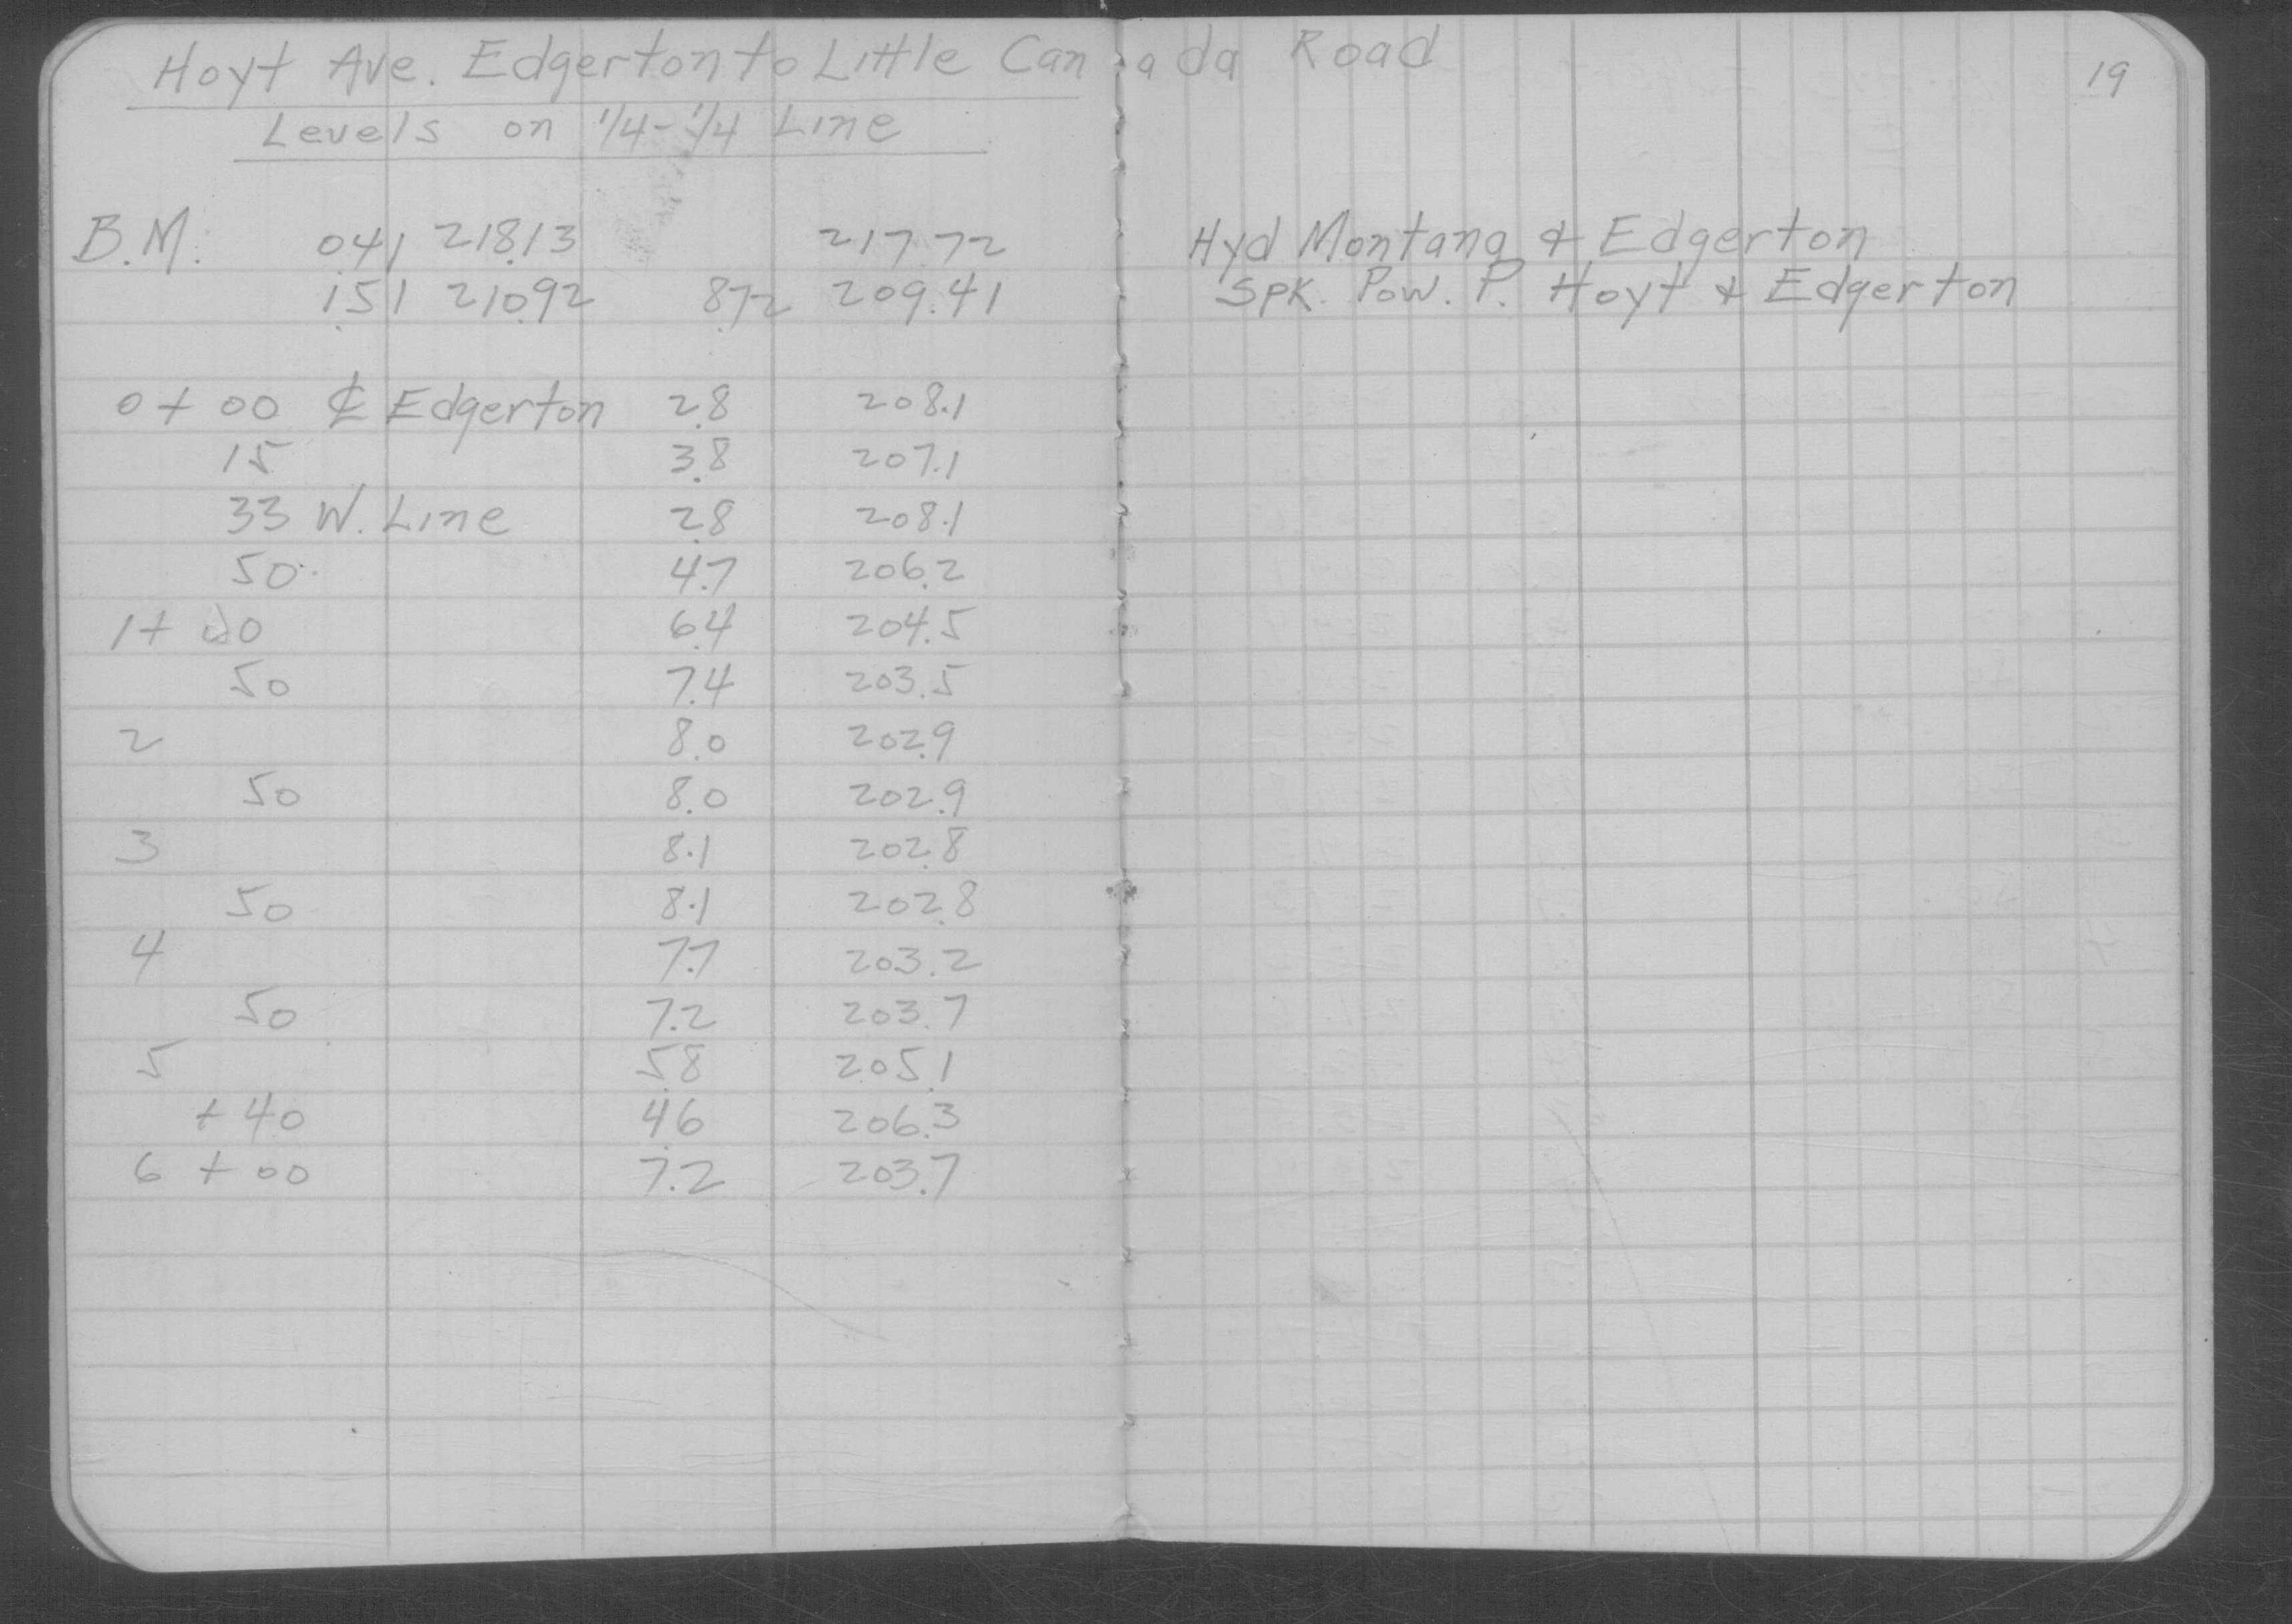 Hoyt Ave. Edgerton to Little Canada Road
19
Levels on 1/4-1/4 Line
B.M. 0.41 218.13 217.72 Hyd Montana & Edgerton
1.51 210.92 8.72 209.41 Spk. Pow. P. Hoyt & Edgerton
0+00 ₵ Edgerton 2.8 208.1
15 3.8 207.1
33 W. Line 2.8 208.1
50 4.7 206.2
1+00 6.4 204.5
50 7.4 203.5
2 8.0 202.9
50 8.0 202.9
3 8.1 202.8
50 8.1 202.8
4 7.7 203.2
50 7.2 203.7
5 5.8 205.1
+40 4.6 206.3
6+00 7.2 203.7